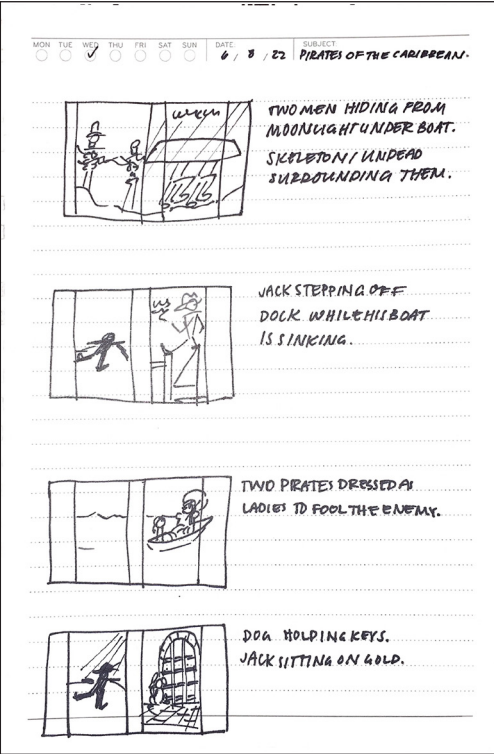 MON TUE WED THU FRI SAT SUN DATE 6 / 8 / 22 SUBJECT PIRATES OF THE CARIBBEAN.
TWO MEN HIDING FROM
MOONLIGHT UNDER BOAT.
SKELETON / UNDEAD
SURROUNDING THEM.
JACK STEPPING OFF
DOCK WHILE HIS BOAT
IS SINKING.
TWO PIRATES DRESSED AS
LADIES TO FOOL THE ENEMY.
DOG HOLDING KEYS.
JACK SITTING ON GOLD.